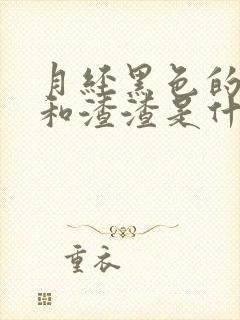 月经黑色的
和渣渣是什
重衣